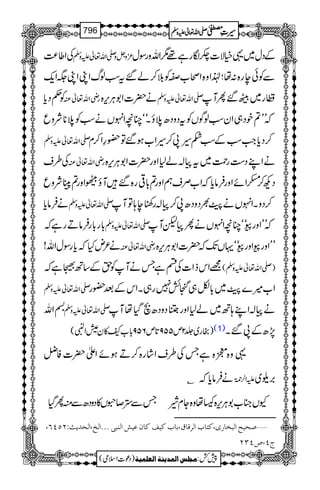 سیرتِ مصطفیٰ صلی اللہ تعالیٰ علیہ وسلم 796
میں دل میں یہی خیالات رکھے انگارہے تھے مگر اللہ ورسول عزوجل و صلی اللہ تعالیٰ علیہ وسلم کی اطاعت
سے کوئی چارہ نہ تھا؛ لہٰذا وہ اصحاب صفہ کو بلا کر لے گئے یہ سب لوگ اپنی اپنی جگہ ایک
قطار میں بیٹھ گئے پھر آپ صلی اللہ تعالیٰ علیہ وسلم نے حضرت ابوہریرہ رضی اللہ تعالیٰ عنہ کو حکم دیا
کہ ’’تم خود ہی ان سب لوگوں کو یہ دودھ پلاؤ۔‘‘ چنانچہ انہوں نے سب کو پلانا شروع
کر دیا جب سب کے سب شکم سیر پی کر سیراب ہو گئے تو حضور اکرم صلی اللہ تعالیٰ علیہ وسلم
نے اپنے دست رحمت میں یہ پیالہ لے لیا اور حضرت ابوہریرہ رضی اللہ تعالیٰ عنہ کی طرف
دیکھ کر مسکرائے اور فرمایا کہ اب صرف ہم اور تم باقی رہ گئے ہیں آؤ بیٹھو اور تم پینا شروع
کر دو۔ انہوں نے پیٹ بھر دودھ پی کر پیالہ رکھنا چاہا تو آپ صلی اللہ تعالیٰ علیہ وسلم نے فرمایا
کہ ’’اور پیو‘‘ چنانچہ انہوں نے پھر پیا لیکن آپ صلی اللہ تعالیٰ علیہ وسلم بار بار فرماتے رہے کہ
’’اور پیو اور پیو‘‘ یہاں تک کہ حضرت ابوہریرہ رضی اللہ تعالیٰ عنہ نے عرض کیا کہ یا رسول اللہ!
(صلی اللہ تعالیٰ علیہ وسلم) مجھے اس ذات کی قسم ہے جس نے آپ کو حق کے ساتھ بھیجا ہے کہ اب
میرے پیٹ میں بالکل ہی گنجائش نہیں رہی۔ اس کے بعد حضور صلی اللہ تعالیٰ علیہ وسلم
نے پیالہ اپنے ہاتھ میں لے لیا اور جتنا دودھ بچ گیا تھا آپ صلی اللہ تعالیٰ علیہ وسلم بسم اللہ
پڑھ کے پی گئے۔(1) (بخاری جلد۲ ص۹۵۵ تا ص۹۵۶ باب کیف کان عیش النبی)
یہی وہ معجزہ ہے جس کی طرف اشارہ کرتے ہوئے اعلیٰ حضرت فاضل
بریلوی علیہ الرحمۃ نے فرمایا کہ
کیوں جناب بوہریرہ تھا وہ کیسا جام شیر
جس سے ستر صاحبوں کا دودھ سے منہ پھر گیا
صحیح البخاری، کتاب الرقاق، باب کیف کان عیش النبی ... الخ، الحدیث: ٦٤٥٢،
ج٤، ص ٢٣٤
پیش کش: مجلس المدینۃ العلمیۃ (دعوتِ اسلامی)